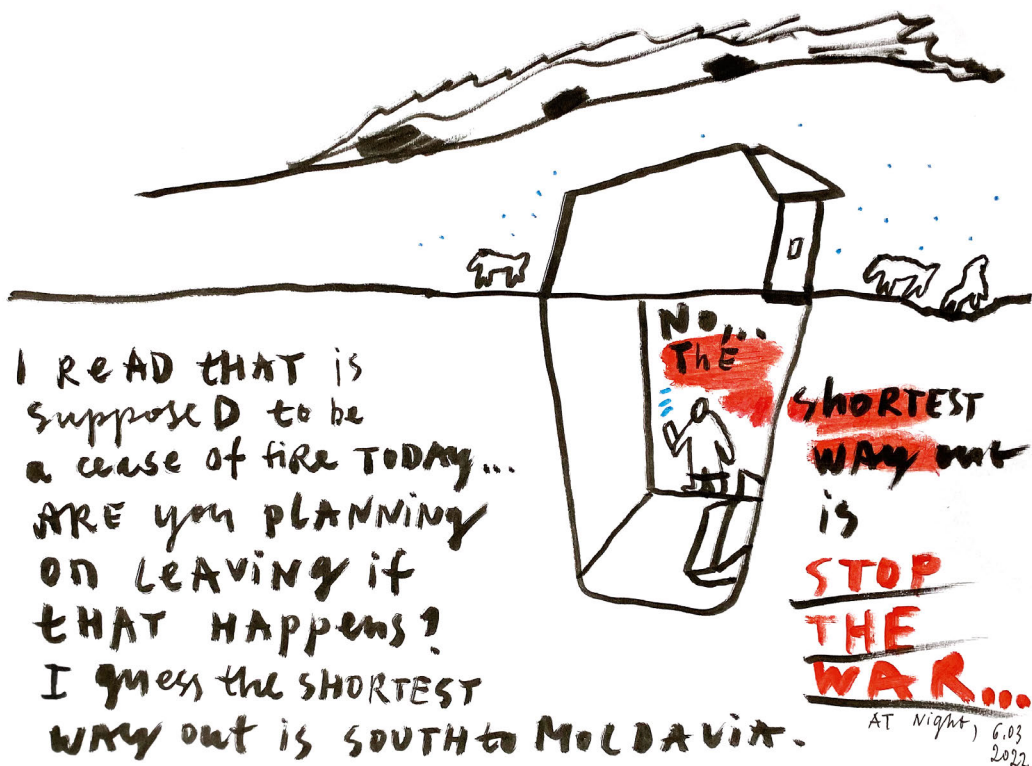 I READ tHAT is
supposeD to be
a cease of fiRe TODAY...
ARE you pLANNiNg
on LEAViNg if
tHAT HAppens?
I guess the SHORTEST
WAY out is SOUTH to MOLDAViA.
NO...
ThE
ShORTEST
WAY out
is
STOP
THE
WAR...
AT Night, 6.03
2022